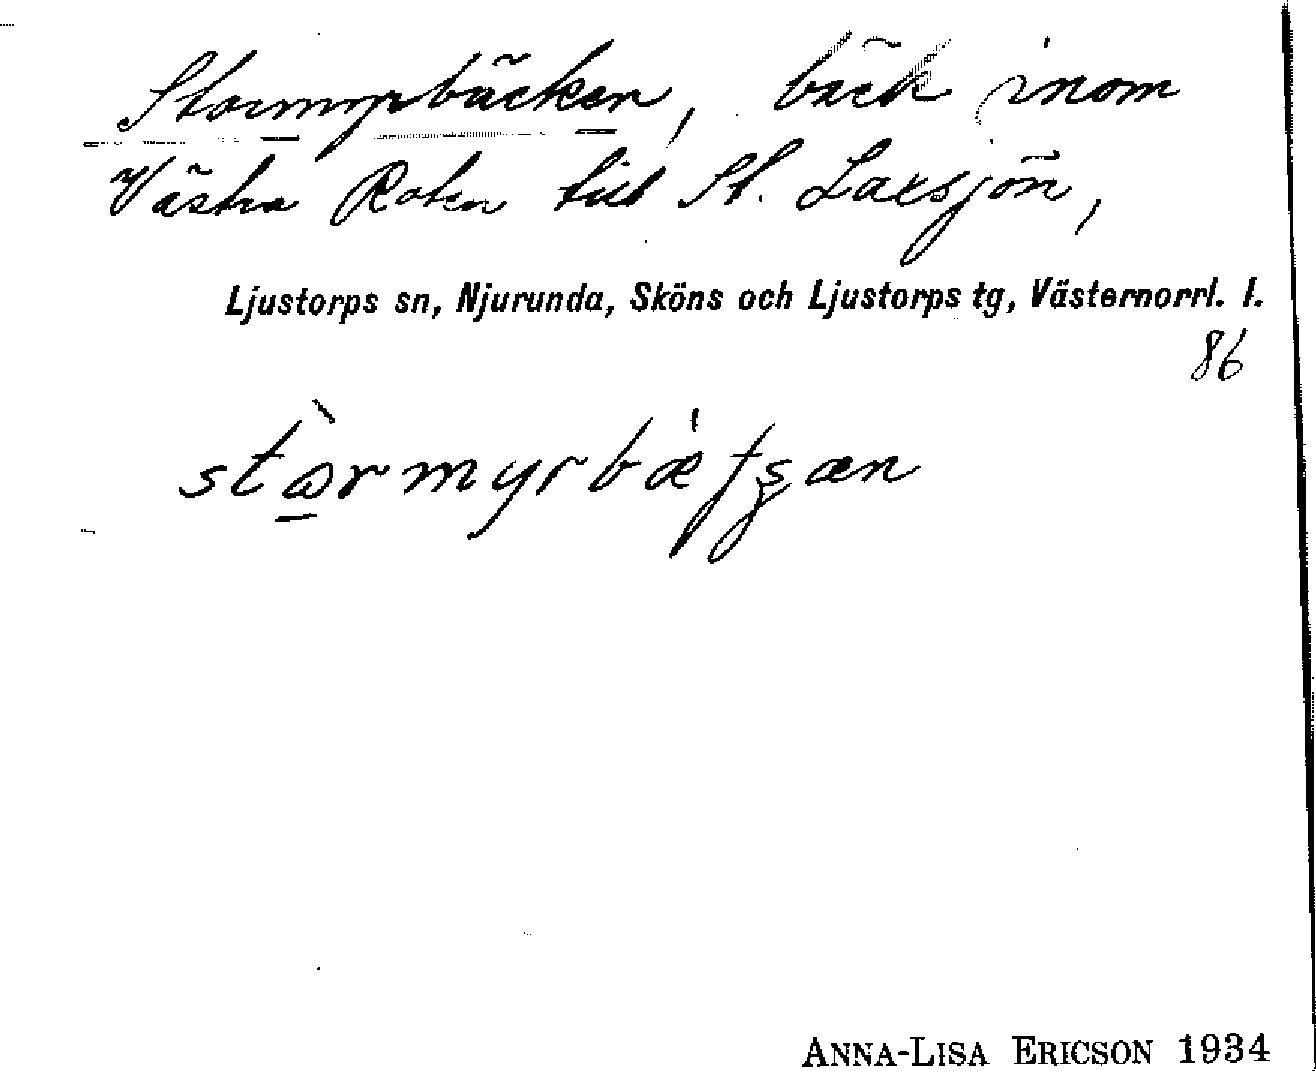 Stormyrbäcken, bäck inom
Västra Roten till St. Laxsjön,
Ljustorps sn, Njurunda, Sköns och Ljustorps tg, Västernorrl. l.
86
ANNA-LISA ERICSON 1934